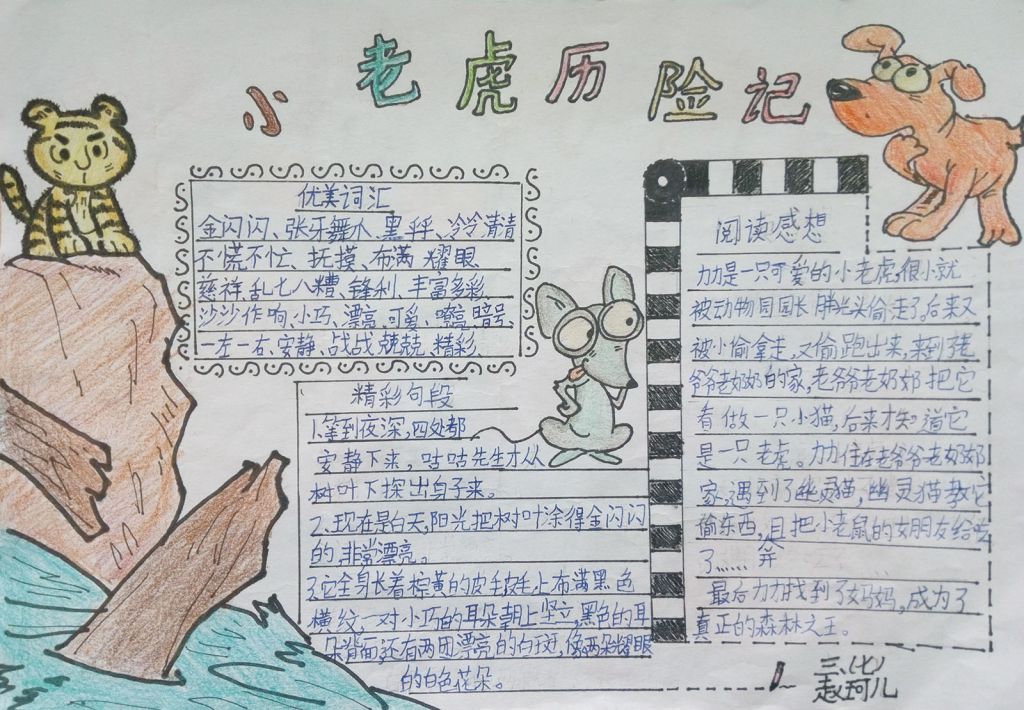 小老虎历险记
优美词汇
金闪闪、张牙舞爪、黑乎乎、冷冷清清
不慌不忙、抚摸、布满 耀眼
慈祥、乱七八糟、锋利、丰富多彩
沙沙作响、小巧、漂亮、可爱、嘹亮、暗号、
一左一右、安静、战战兢兢、精彩、
精彩句段
1.等到夜深,四处都
安静下来,咕咕先生才从
树叶下探出身子来。
2.现在是白天,阳光把树叶涂得金闪闪
的,非常漂亮。
3.它全身长着棕黄的皮毛,皮毛上布满黑色
横纹,一对小巧的耳朵朝上竖立,黑色的耳
朵背面还有两团漂亮的白斑,像两朵耀眼
的白色花朵。
阅读感想
力力是一只可爱的小老虎,很小就
被动物园园长胖光头偷走了。后来又
被小偷拿走,又偷跑出来,来到老
爷爷老奶奶的家,老爷爷老奶奶把它
看做一只小猫,后来才知道它
是一只老虎。力力住在老爷爷老奶奶
家,遇到了幽灵猫,幽灵猫教它
偷东西,且把小老鼠的女朋友给弄丢
了……
最后力力找到了妈妈,成为了
真正的森林之王。
三、(七)
赵珂儿